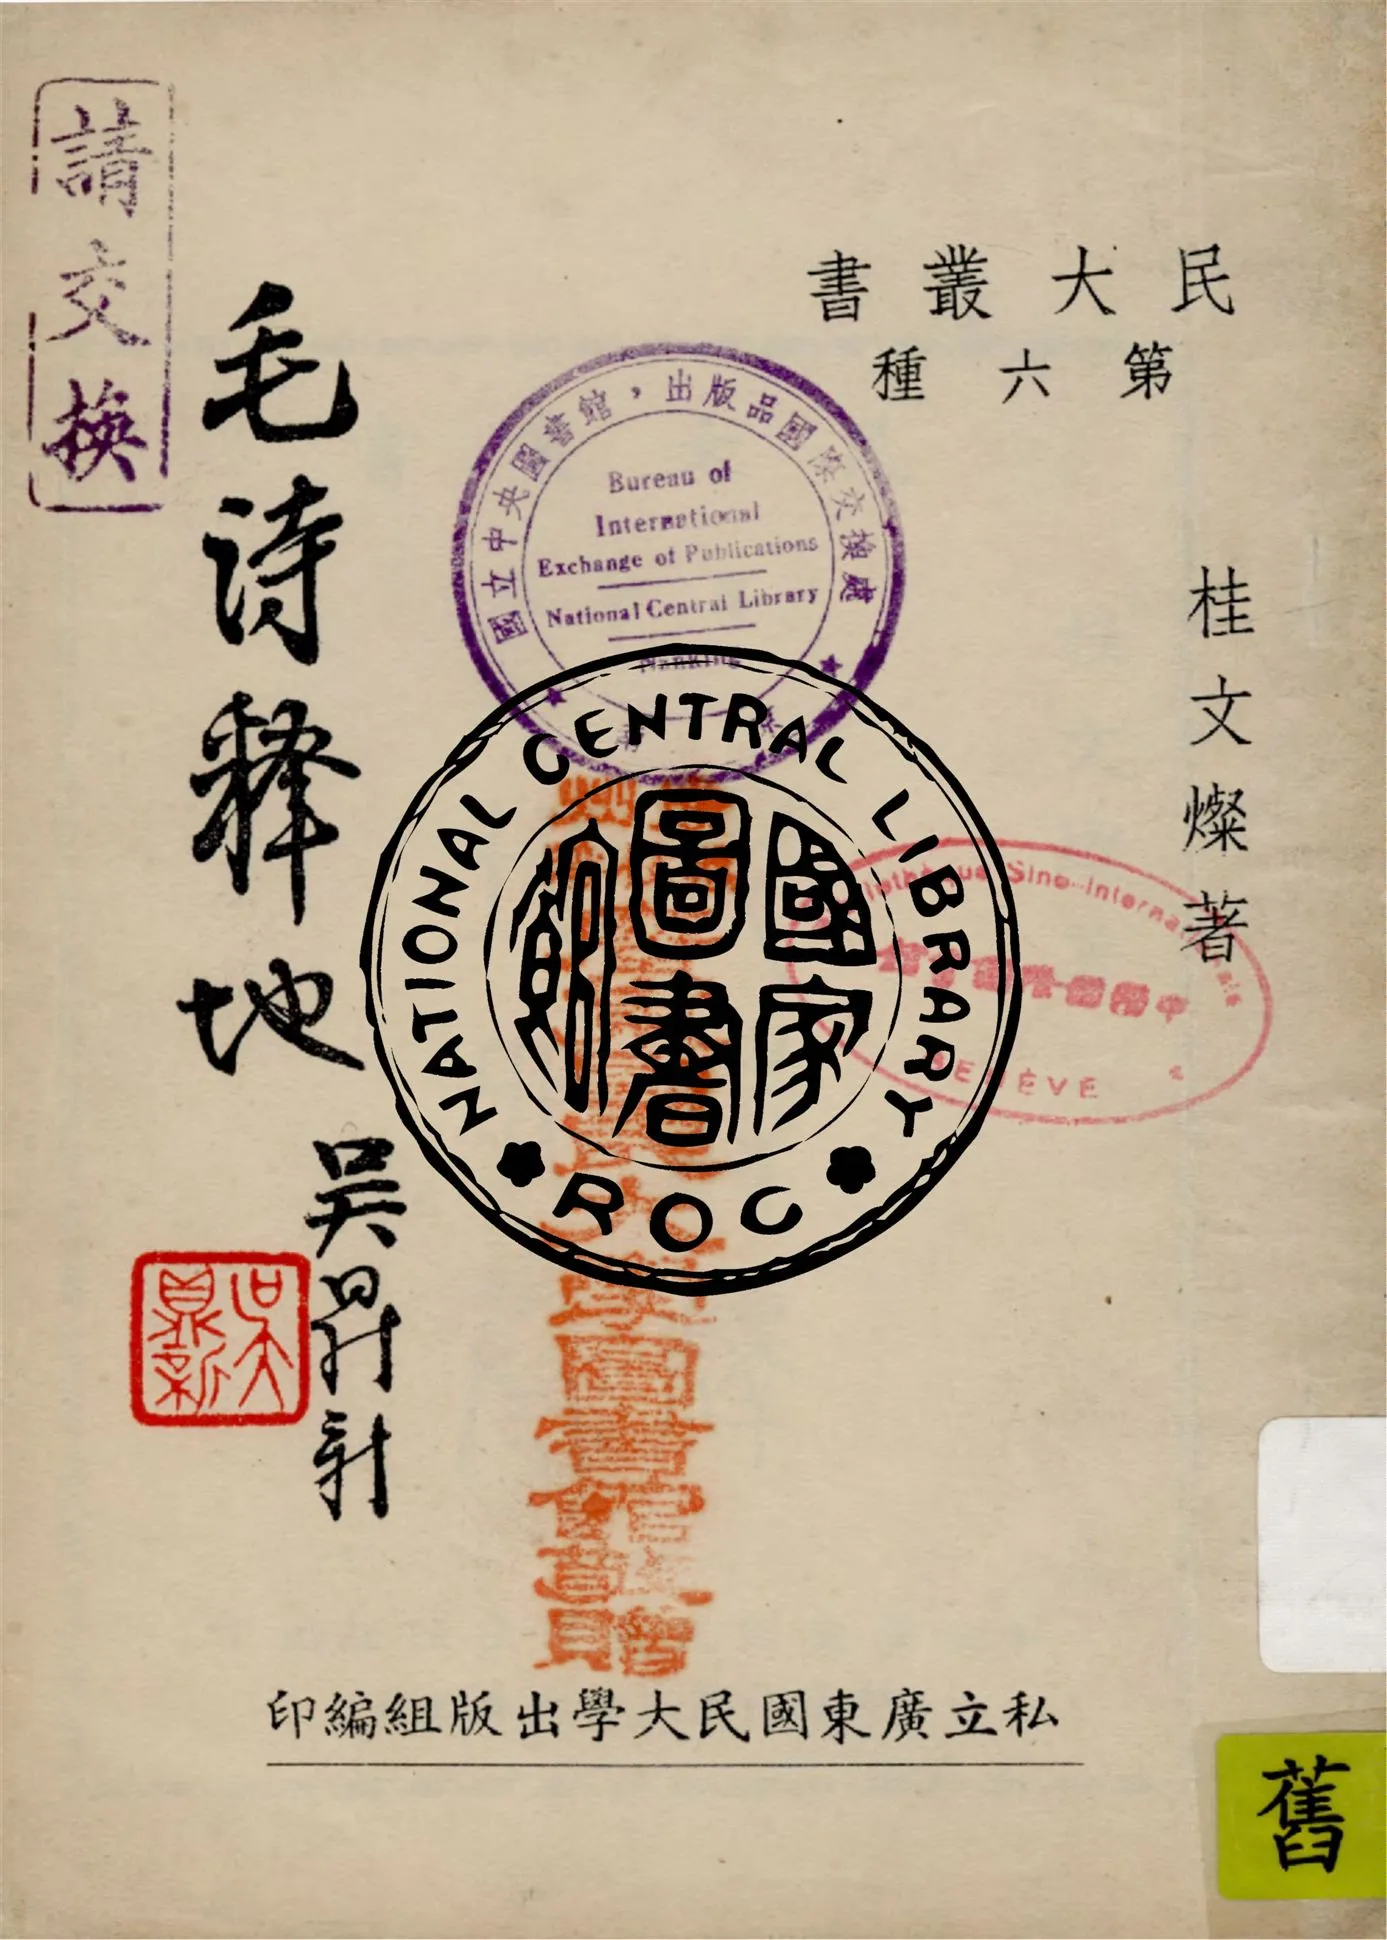 民大叢書
第六種
桂文燦著
毛詩釋地
吳鼎新
請交換
國立中央圖書館，出版品國際交換處
Bureau of
International
Exchange of Publications
National Central Library
Nanking
NATIONAL CENTRAL LIBRARY
ROC
國家圖書館
Sino-Internationale
中國國際圖書館
GENÈVE
大學圖書館敬贈
吳鼎新
私立廣東國民大學出版組編印
舊